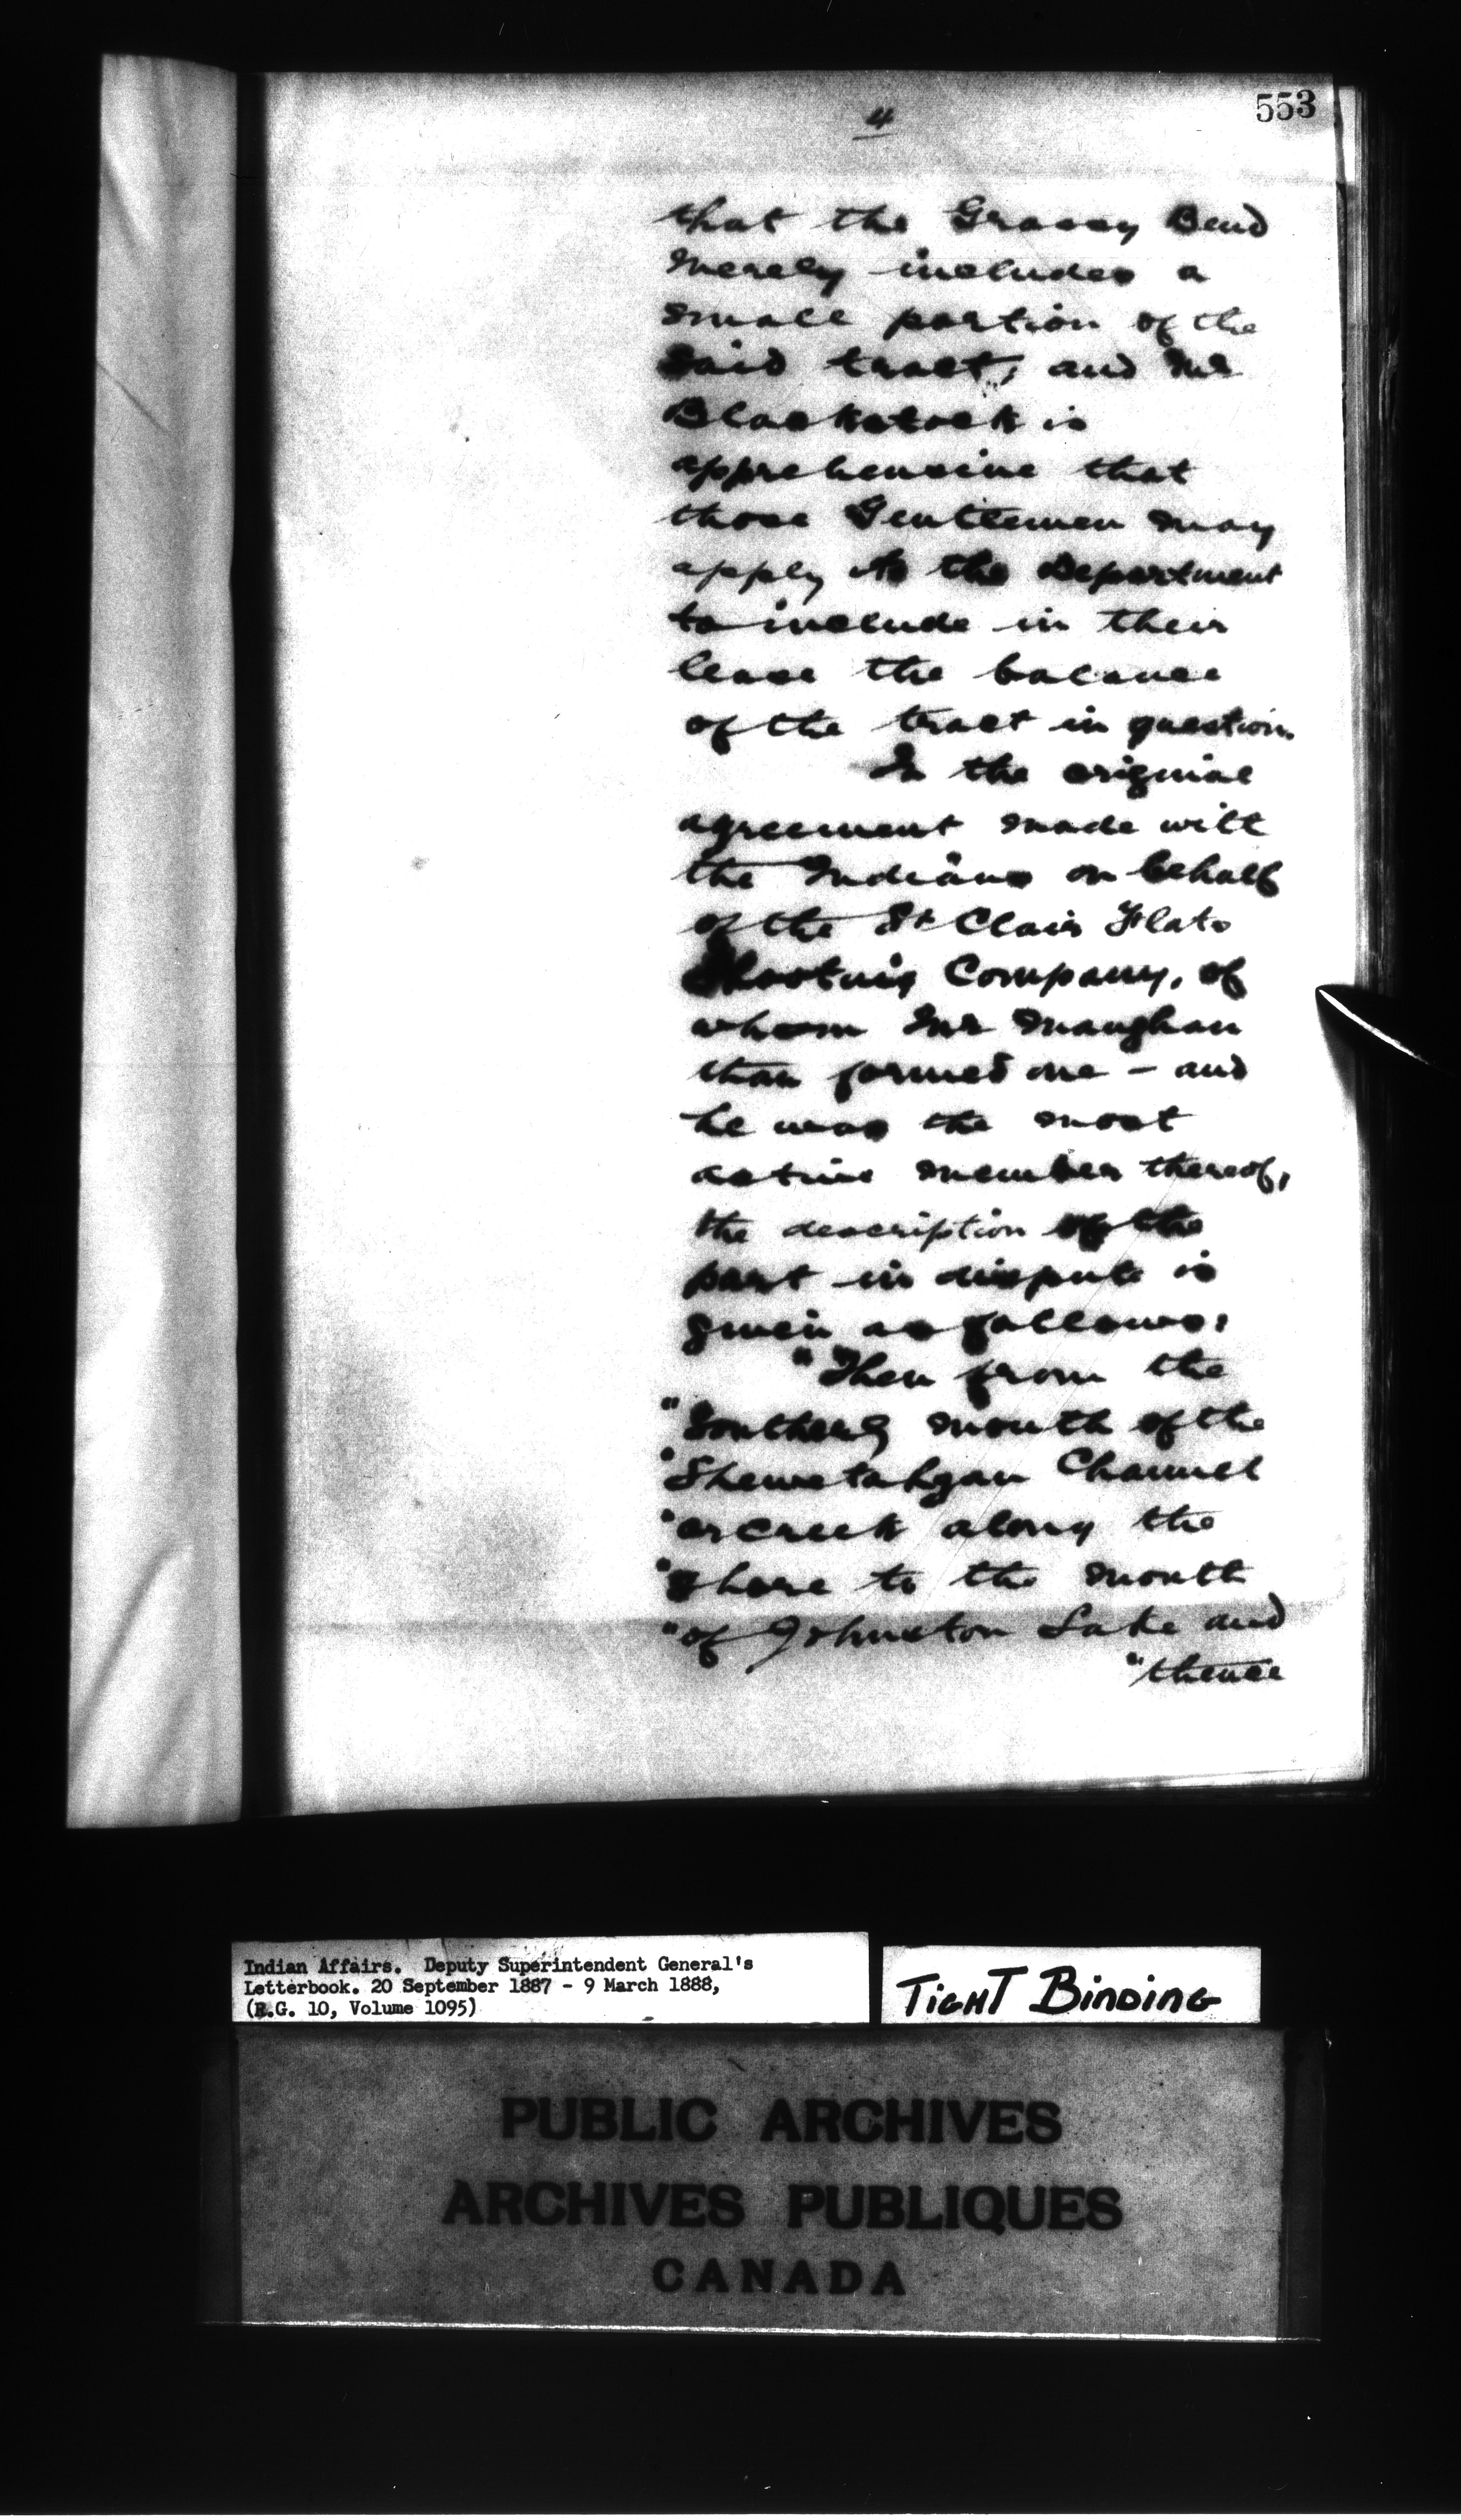 553
4
that the Grassy Bend
merely includes a
small portion of the
said tract, and Mr
Blackstock is
apprehensive that
those Gentlemen may
apply to the Department
to include in their
lease the balance
of the tract in question.
In the original
agreement made with
the Indians on behalf
of the St Clair Flats
Shooting Company, of
whom Mr Maughan
than formed one - and
he was the most
active member thereof,
the description of the
part in dispute is
given as follows:
"Then from the
"Southerly mouth of the
"Shewetahgan Channel
"or creek along the
"shore to the mouth
"of Johnston Lake and
"thence
Indian Affairs. Deputy Superintendent General's
Letterbook. 20 September 1887 - 9 March 1888,
(R.G. 10, Volume 1095)
TIGHT BINDING
PUBLIC ARCHIVES
ARCHIVES PUBLIQUES
CANADA